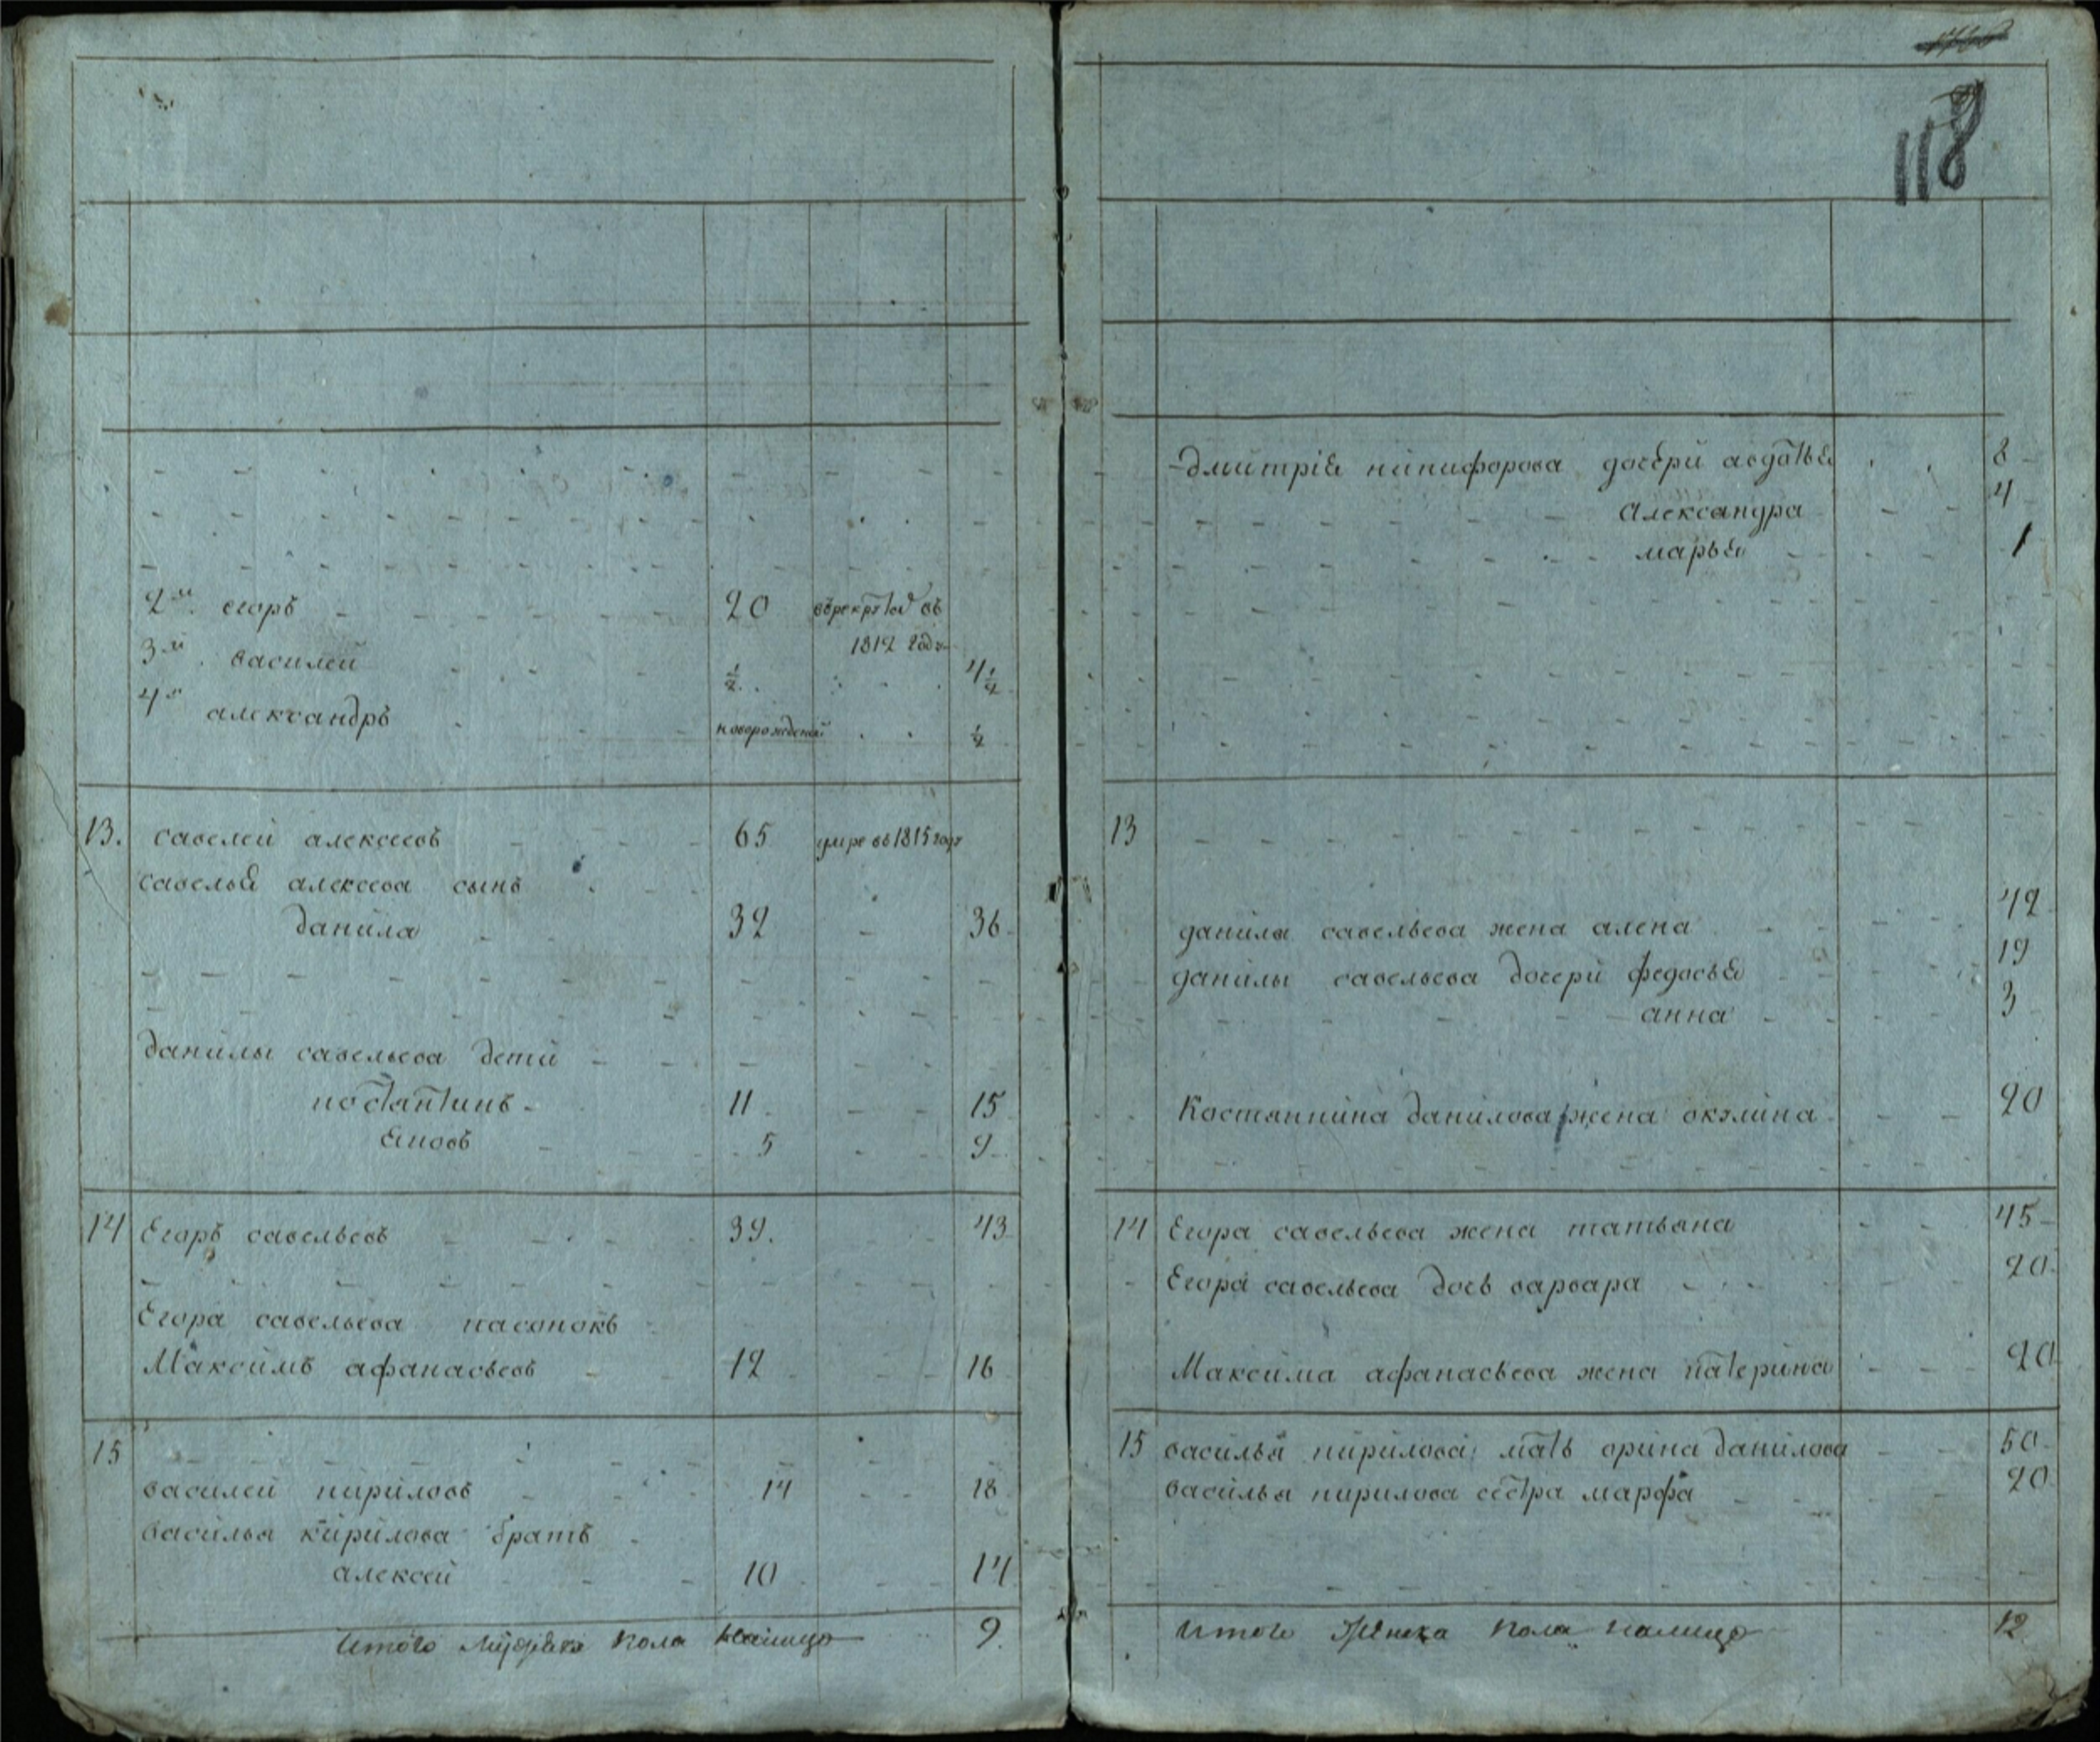 118
2й егоръ 20 въ рекруты въ
1812 году
3й василей ½ 4½
4й александръ новорожденой ½
13. савелей алексеевъ 65 умре въ 1815 году
савелья алексеева сынъ
данила 32 36
данилы савельева дети
костантинъ 11 15
яковъ 5 9
14 Егоръ савельевъ 39. 43
Егора савельева пасынокъ
Максимъ афанасьевъ 12 16
15
василей кириловъ 14 18
василья кирилова братъ
алексей 10 14
Итого мужеска пола налицо 9.
дмитрия никифорова дочери авдотья 8
Александра 4
марья 1
13
данилы савельева жена алена 42
данилы савельева дочери федосья 19
анна 3
Костантина данилова жена окулина 20
14 Егора савельева жена татьяна 45
Егора савельева дочь варвара 20
Максима афанасьева жена катерина 20
15 василья кирилова мать орина данилова 50
василья кирилова сестра марфа 20
Итого женска пола налицо 12